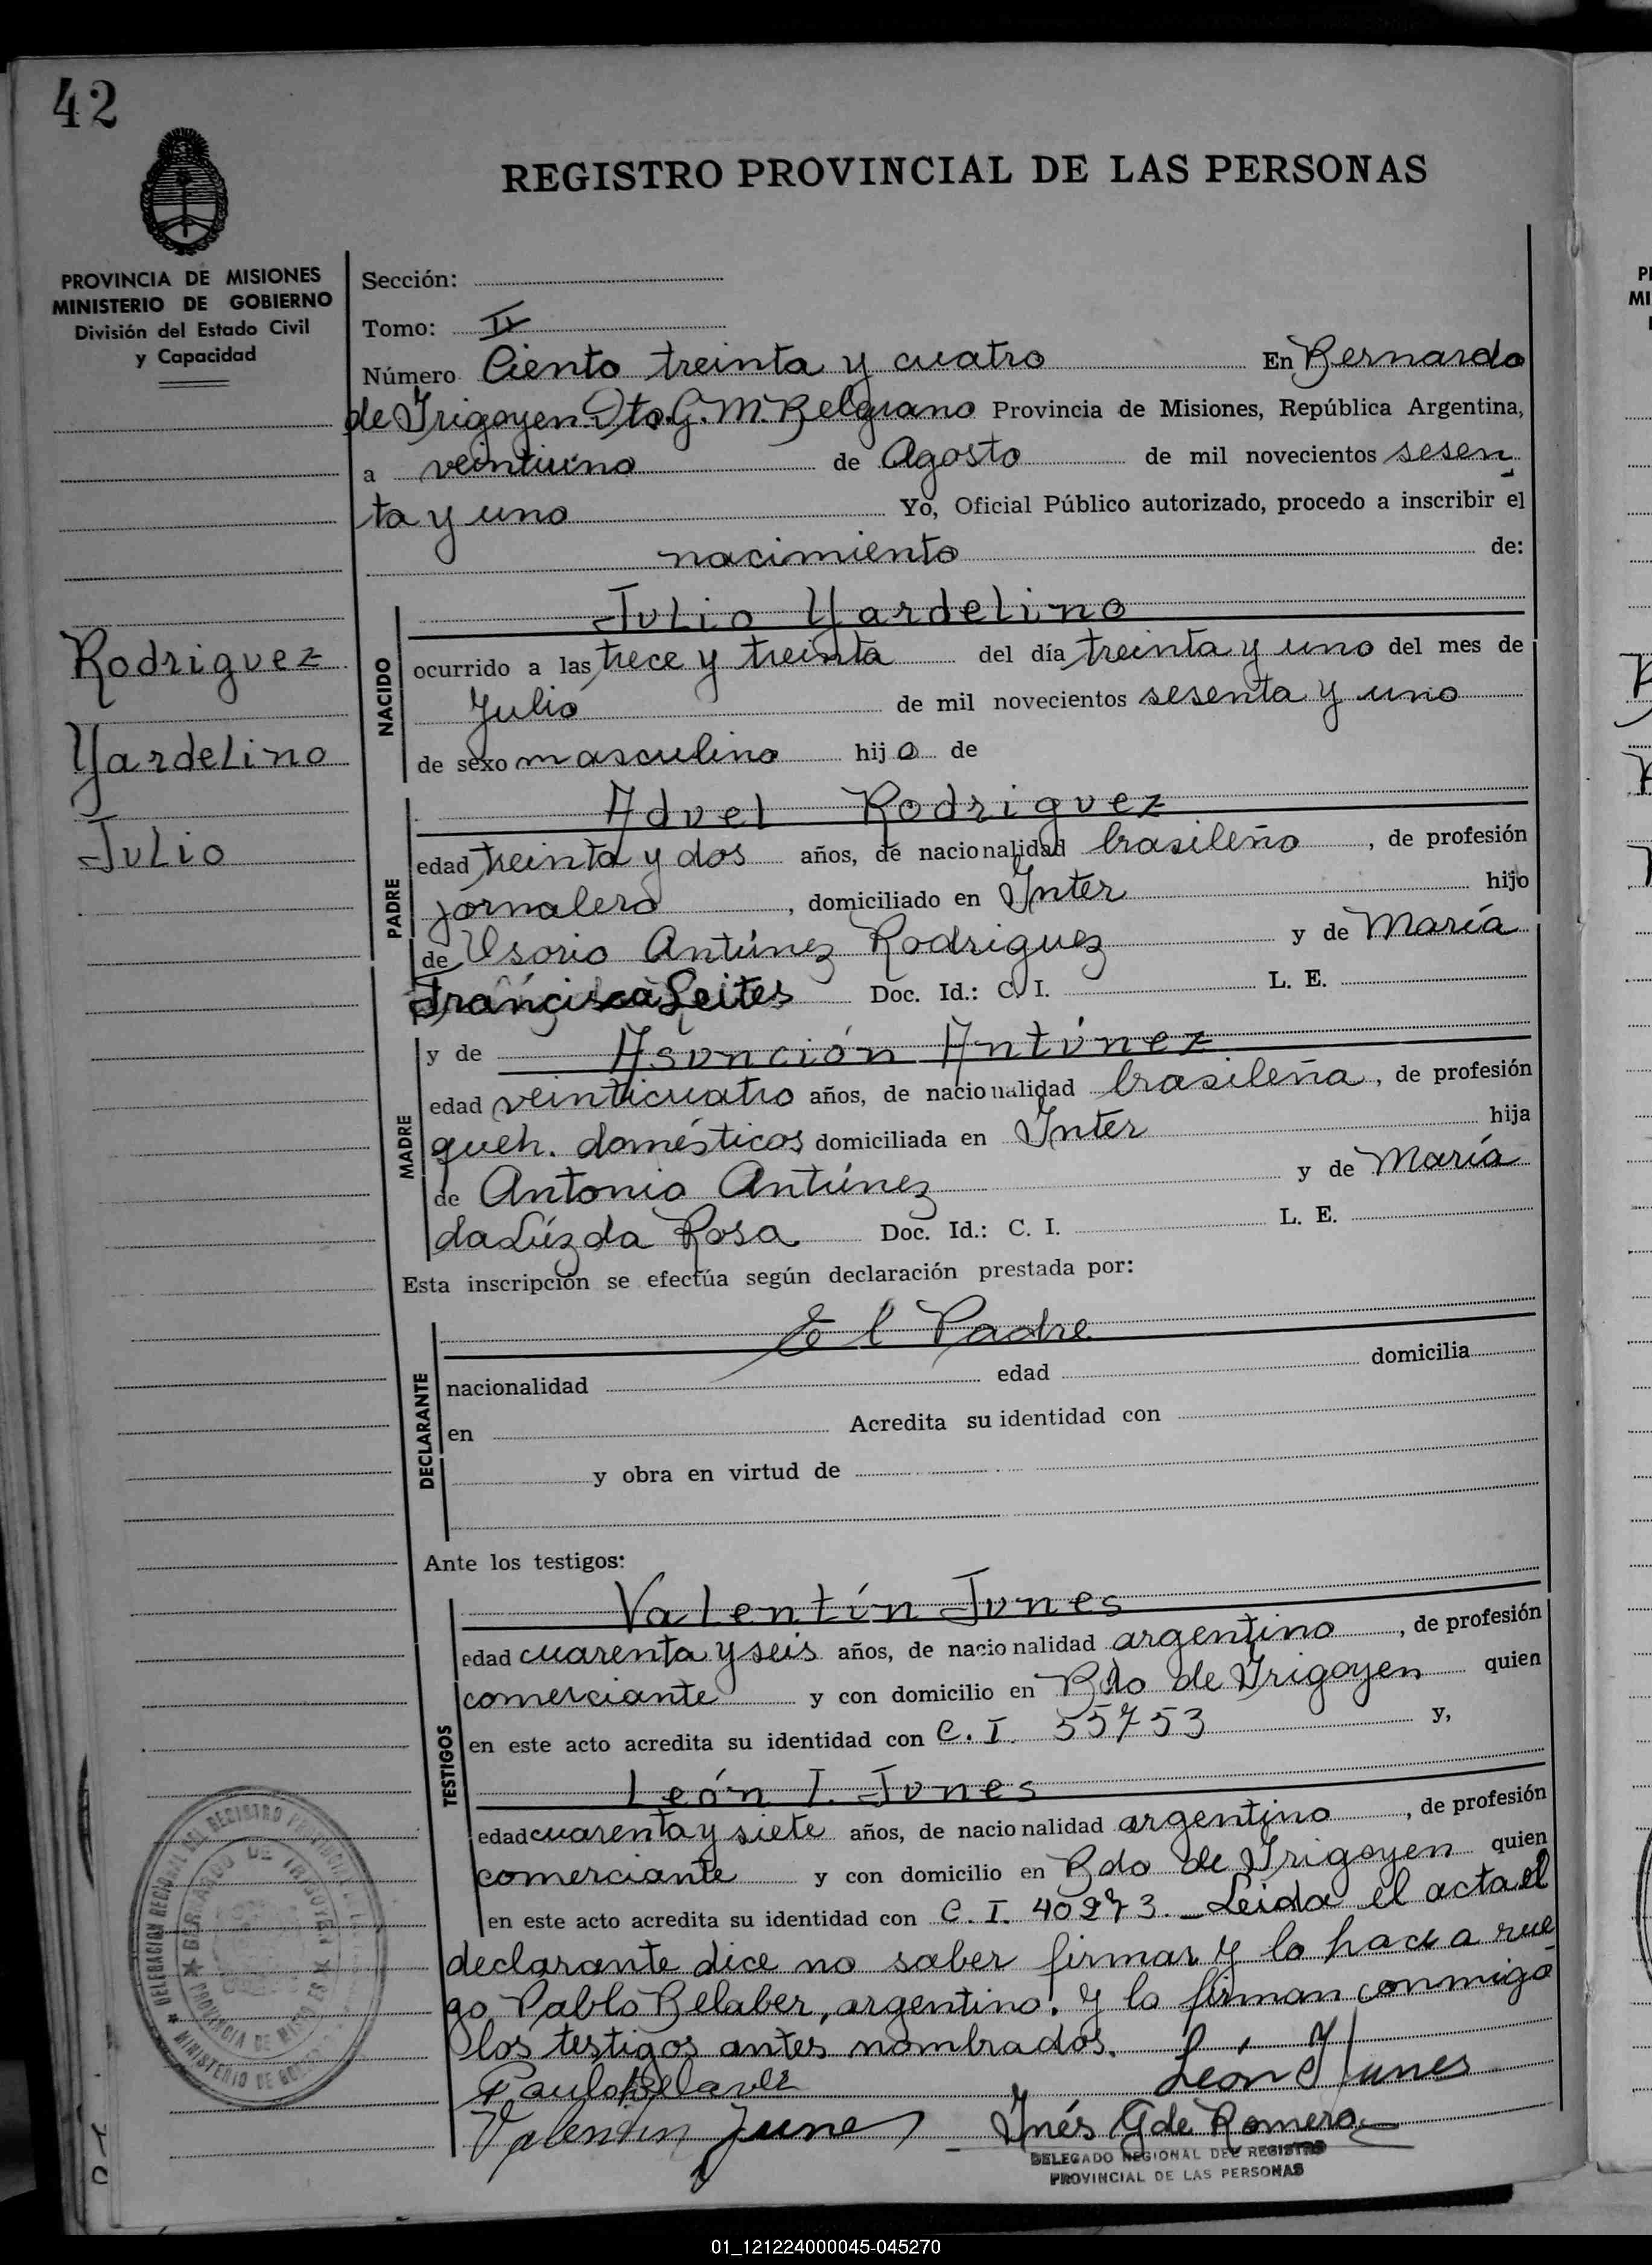 42
REGISTRO PROVINCIAL DE LAS PERSONAS
PROVINCIA DE MISIONES
MINISTERIO DE GOBIERNO
División del Estado Civil
y Capacidad
Sección:
Tomo: II
Número Ciento treinta y cuatro En Bernardo
de Irigoyen Dto. G. M. Belgrano Provincia de Misiones, República Argentina,
a veintiuno de Agosto de mil novecientos sesen
ta y uno Yo, Oficial Público autorizado, procedo a inscribir el
nacimiento de:
Rodriguez
Yardelino
Julio
NACIDO
Julio Yardelino
ocurrido a las trece y treinta del día treinta y uno del mes de
Julio de mil novecientos sesenta y uno
de sexo masculino hijo de
PADRE
Aduel Rodriguez
edad treinta y dos años, de nacionalidad brasileño, de profesión
jornalero, domiciliado en Inter hijo
de Osorio Antúnez Rodriguez y de María
Francisca Leites Doc. Id.: C. I. L. E.
MADRE
y de Asunción Antúnez
edad veinticuatro años, de nacionalidad brasileña, de profesión
queh. domésticos domiciliada en Inter hija
de Antonio Antúnez y de María
da Lúz da Rosa Doc. Id.: C. I. L. E.
Esta inscripción se efectúa según declaración prestada por:
DECLARANTE
El Padre
nacionalidad edad domicilia
en Acredita su identidad con
y obra en virtud de
Ante los testigos:
TESTIGOS
Valentín Junes
edad cuarenta y seis años, de nacionalidad argentino, de profesión
comerciante y con domicilio en Bdo de Irigoyen quien
en este acto acredita su identidad con C. I. 55753 y,
León I. Junes
edad cuarenta y siete años, de nacionalidad argentino, de profesión
comerciante y con domicilio en Bdo de Irigoyen quien
en este acto acredita su identidad con C. I. 40273. Leida el acta el
declarante dice no saber firmar y lo hace a rue
go Pablo Belaber, argentino. y lo firman conmigo
los testigos antes nombrados.
León I Junes
Valentin Junes
Inés G de Romero
DELEGADO REGIONAL DEL REGISTRO
PROVINCIAL DE LAS PERSONAS
DELEGACION REGIONAL DEL REGISTRO PROVINCIAL DE LAS
BERNARDO DE IRIGOYEN
PROVINCIA DE MISIONES
MINISTERIO DE GOBIERNO
01_121224000045-045270